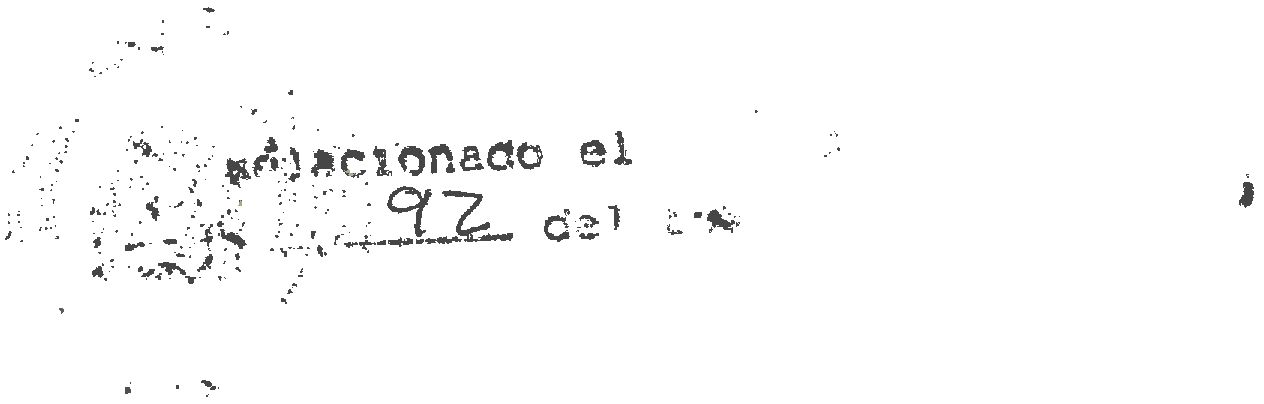 relacionado el
92 del